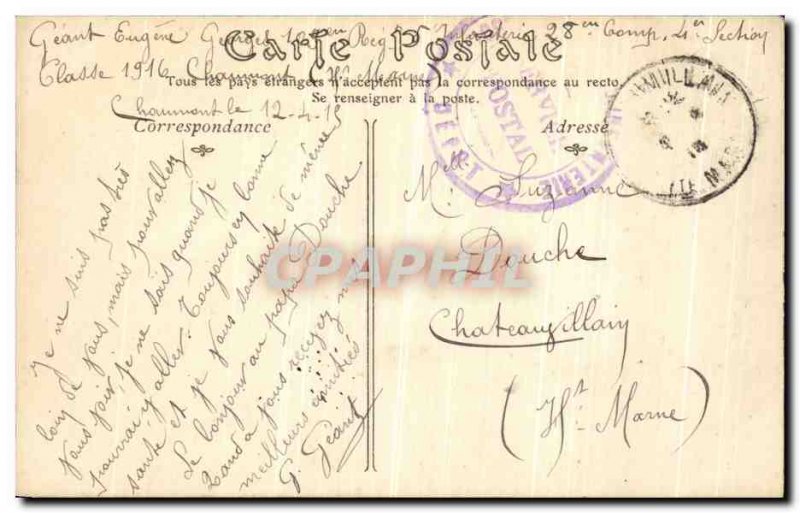 Géant Eugène Georges 10 en Reg Infanterie 28 en Comp. 4e Section
Carte Postale
Classe 1916 Chaumont (Hte Marne)
Tous les pays étrangers n'acceptent pas la correspondance au recto.
Se renseigner à la poste.
Chaumont le 12-4-15
Correspondance
Adresse
Je ne suis pas très
loin de vous, mais pour aller
vous voir, je ne sais quand je
pourrai y aller. Toujours en bonne
santé et je vous souhaite de même
Le bonjour au papa Douche
Quand à vous recevez mes
meilleurs amitiés
G. Géant
DÉPÔT
POSTAL
Melle Suzanne
Douche
Chateauvillain
(Hte Marne)
CPAPHIL